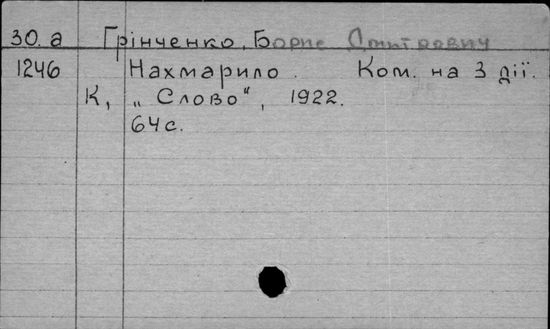 30.а Грінченко, Борис Дмитрович
1246 Нахмарило. Ком. на 3 дії.
К, „Слово", 1922.
64с.